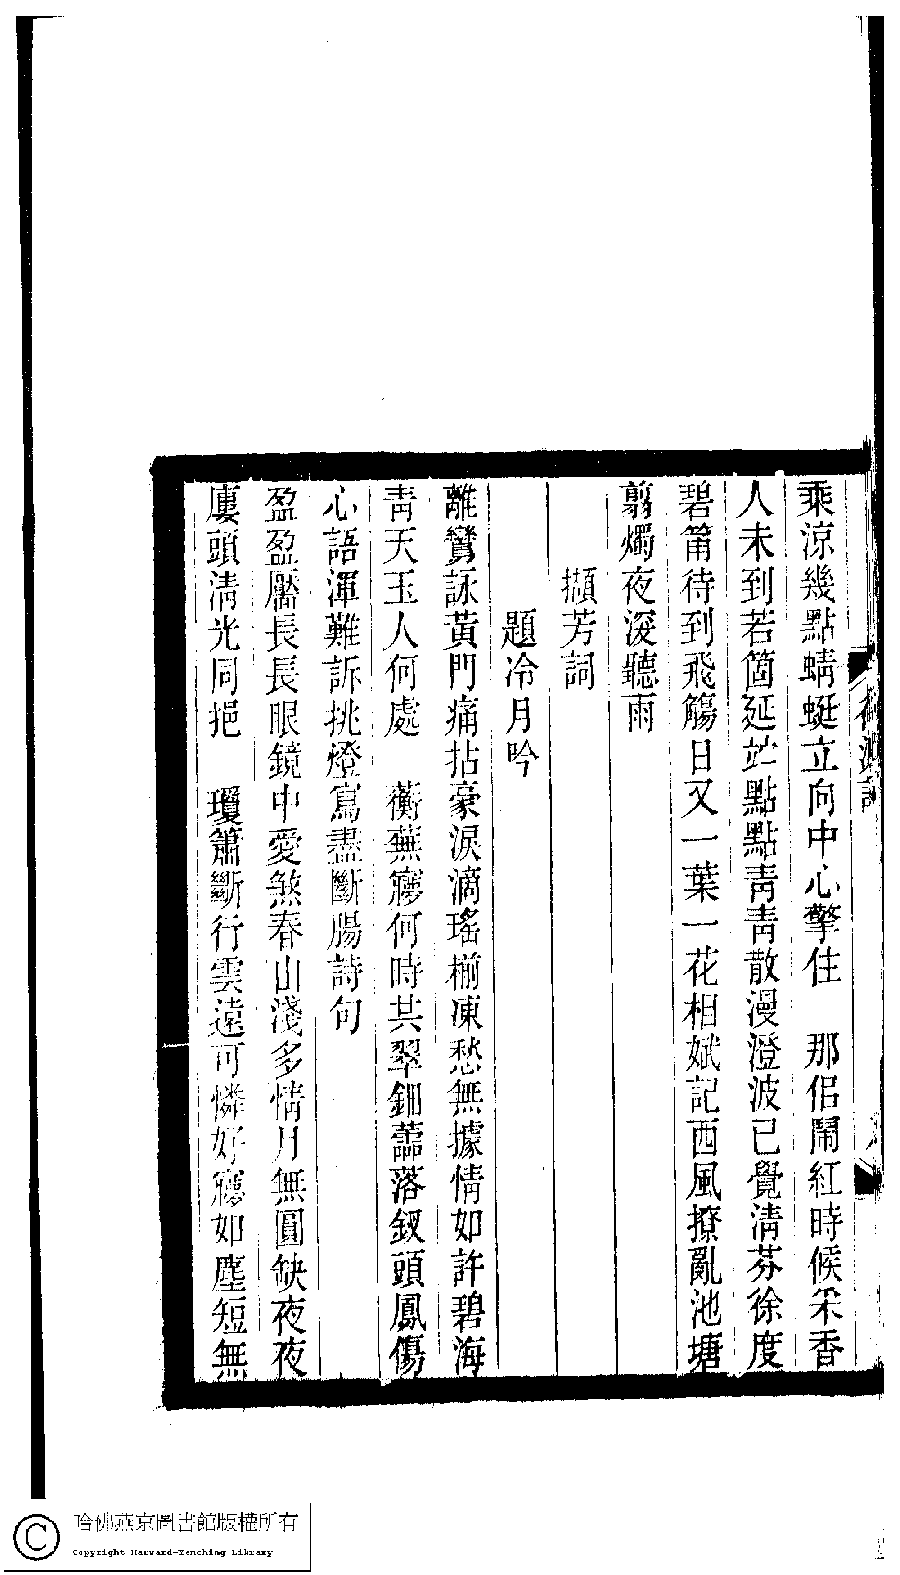 乘涼幾點蜻蜓立向中心擎住　那侶鬧紅時候采香
人未到若箇延竚點點靑靑散漫澄波已覺淸芬徐度
碧筩待到飛觴日又一葉一花相妩記西風撩亂池塘
翦燭夜深聽雨
擷芳詞
題冷月吟
離鸞詠黃門痛拈豪淚滴瑤椾凍愁無據情如許碧海
靑天玉人何處　蘅蕪寢何時共翠鈿蕚落釵頭鳳傷
心語渾難訴挑燈寫盡斷腸詩句
盈盈靨長長眼鏡中愛煞春山淺多情月無圓缺夜夜
廔頭淸光同挹　瓊簫斷行雲遠可憐好寢如塵短無
哈佛燕京圖書館版權所有
Copyright Harvard-Yenching Library